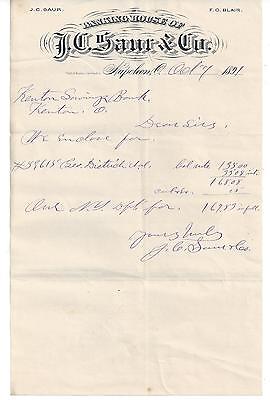 J.C. SAUR. F.C. BLAIR.
BANKING HOUSE OF
J.C. Saur & Co.
Napoleon, O. Oct 7 1891
Kenton Savings Bank,
Kenton, O.
Dear Sirs,
We enclose for
Geo. Dietrich et al. Bal note 135.00
33.08 int
168.08
Our N.Y. dft for 167.83 in full
Yours truly
J.C. Saur & Co.